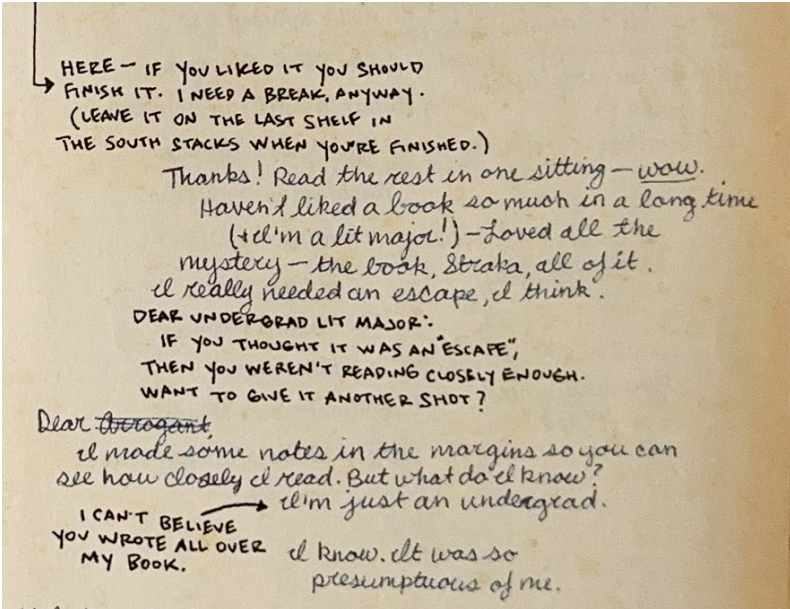 HERE – IF YOU LIKED IT YOU SHOULD
FINISH IT. I NEED A BREAK, ANYWAY.
(LEAVE IT ON THE LAST SHELF IN
THE SOUTH STACKS WHEN YOU'RE FINISHED.)
Thanks! Read the rest in one sitting – wow.
Haven't liked a book so much in a long time
(+ I'm a lit major!) – Loved all the
mystery – the book, Straka, all of it.
I really needed an escape, I think.
DEAR UNDERGRAD LIT MAJOR:
IF YOU THOUGHT IT WAS AN "ESCAPE",
THEN YOU WEREN'T READING CLOSELY ENOUGH.
WANT TO GIVE IT ANOTHER SHOT?
Dear Arrogant
I made some notes in the margins so you can
see how closely I read. But what do I know?
I'm just an undergrad.
I CAN'T BELIEVE
YOU WROTE ALL OVER
MY BOOK.
I know. It was so
presumptuous of me.